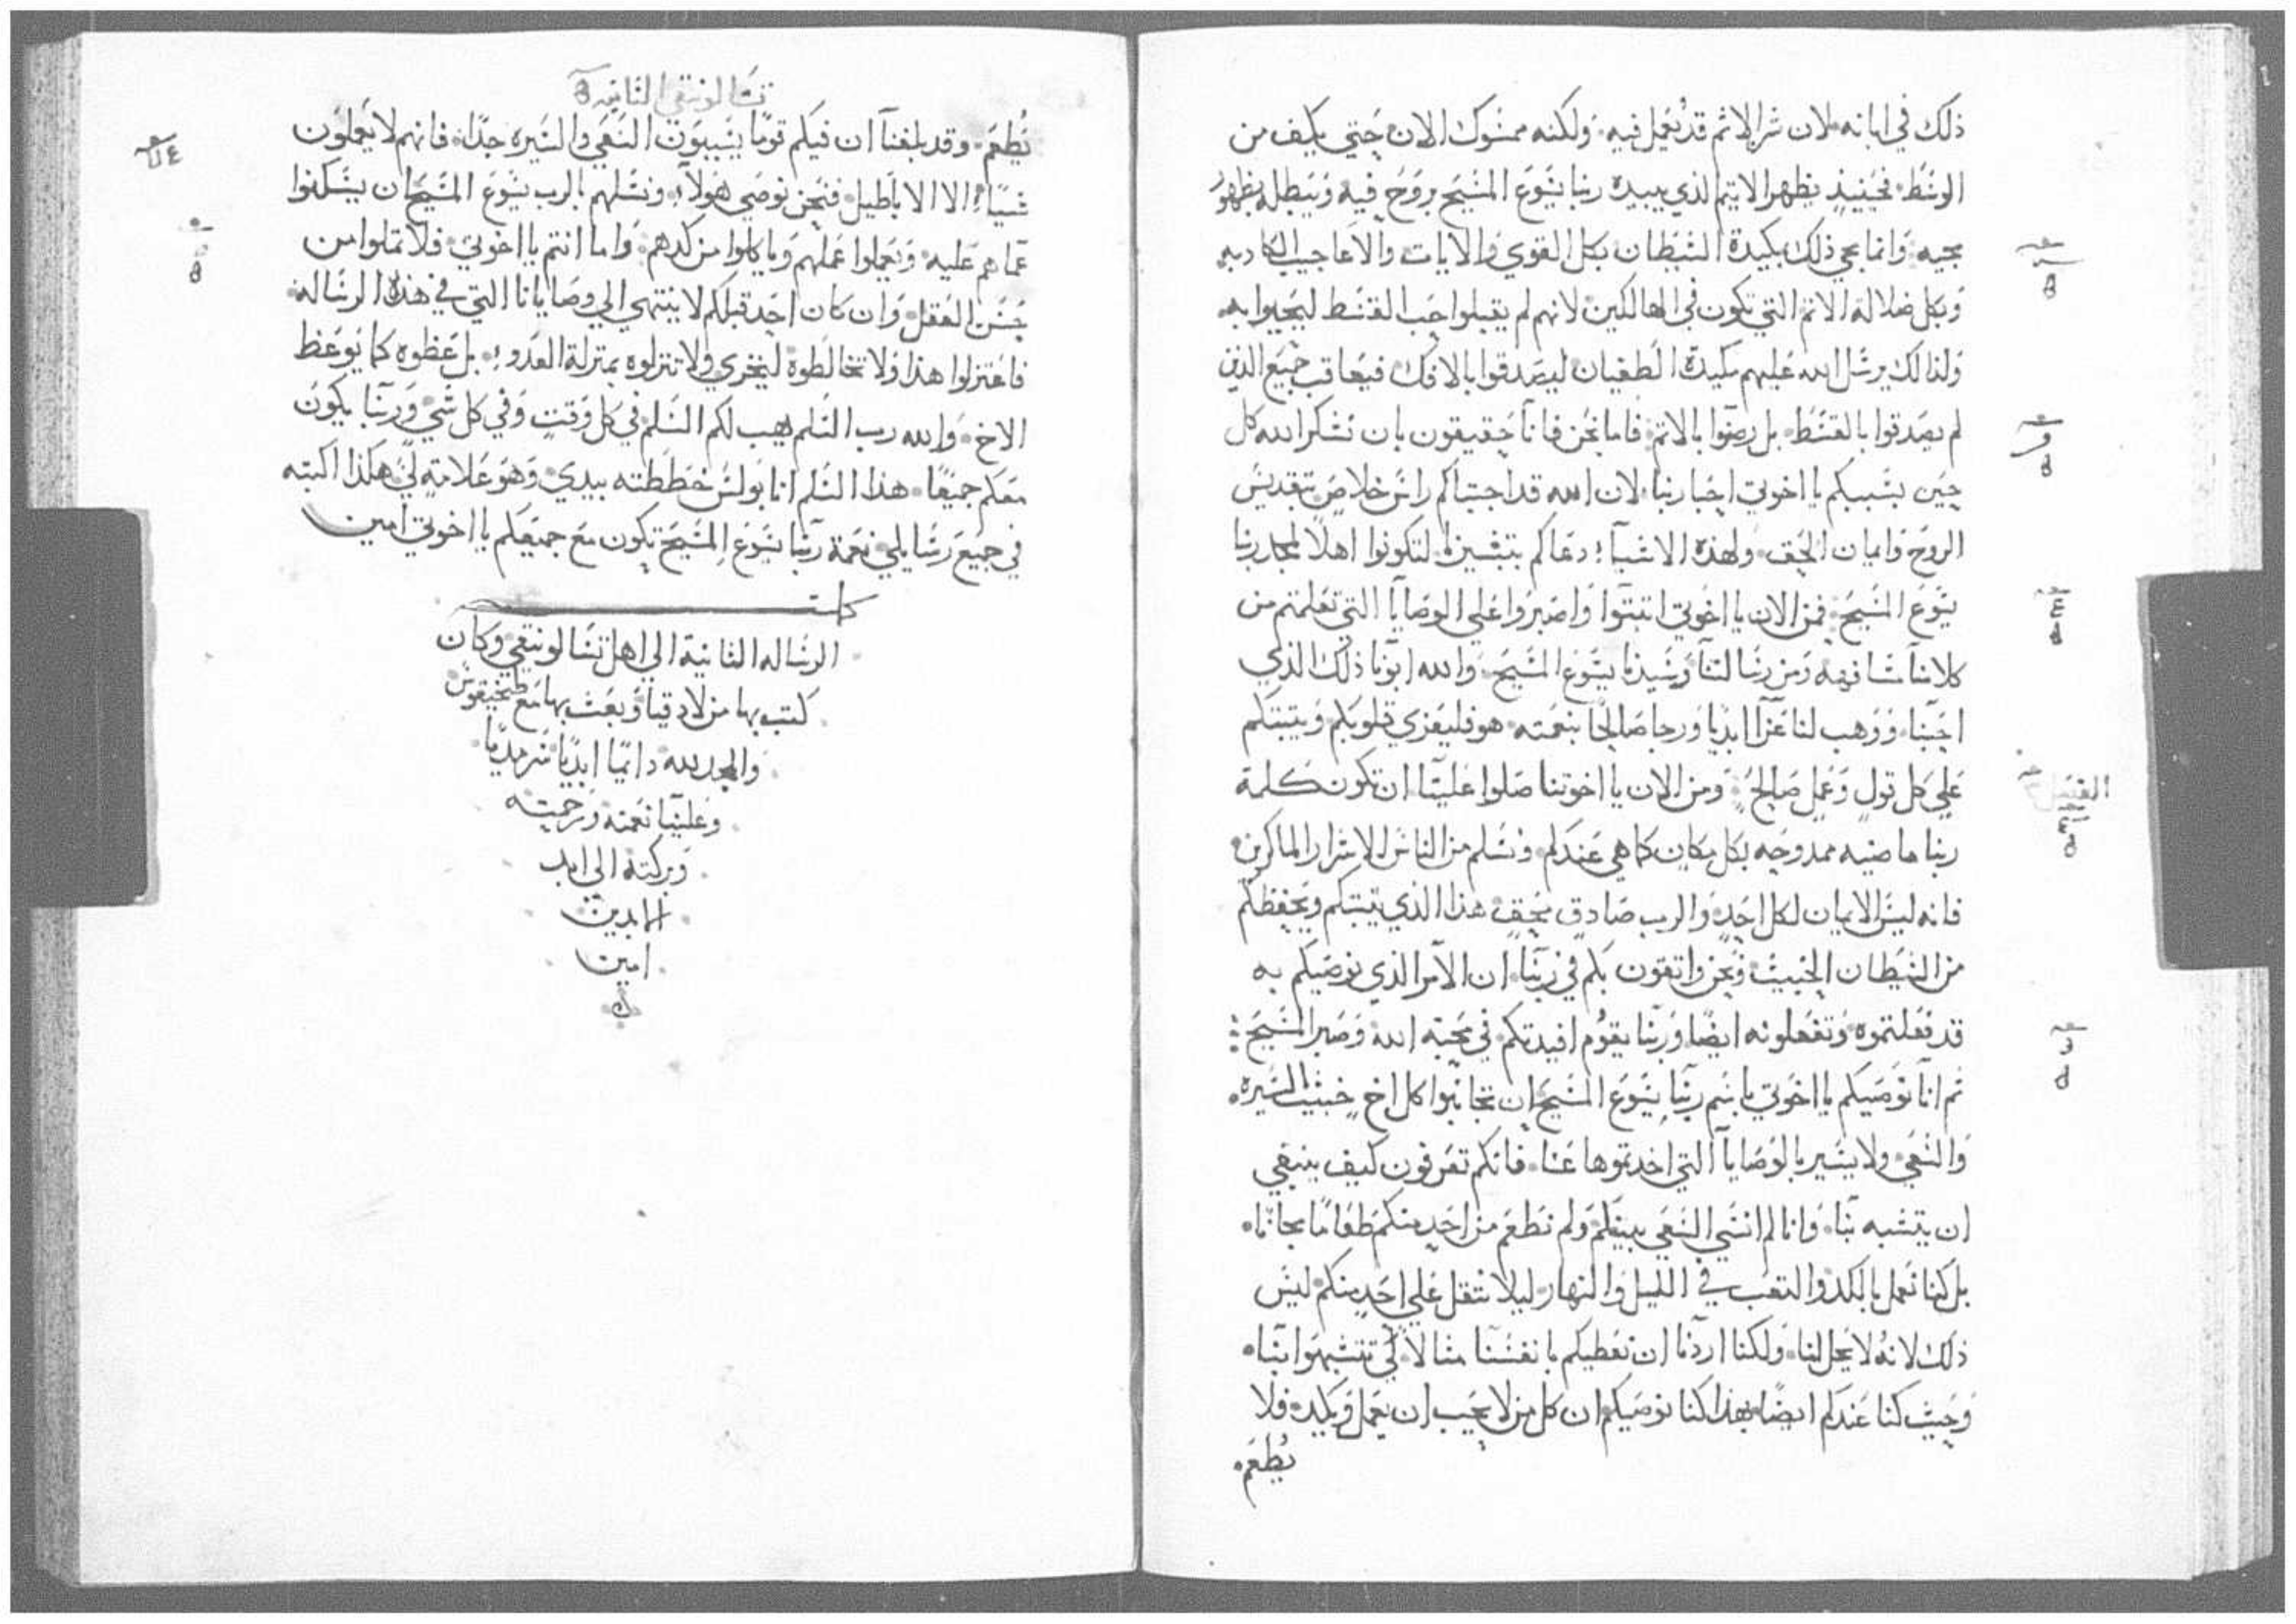 ذلك في ابانه لان شر الاثم قد يُعمل فيه ولكنه ممسوك الان حتي يكف من
الوسَط فحينيذٍ يظهر الاثيم الذي يبيده ربنا يسَوعَ المسَيح بروَحَ فيه وَيبطله بظهور
مجيه وَانما مجي ذلك بمكيدة الشيطان بكل القوي وَالايات والاعَاجيب الكادبه
وَبكل ضلالة الاثم التي تكون في الهالكين لانهم لم يقبلوا حب القسَط ليحيوا به
وَلذالك يرسَل الله عَليهم مكيدة الطغيان ليصَدقوا بالافك فيعاقب جميَع الذين
لم يصَدقوا بالقسَط بل رضَوا بالاثم فاما نحن فانا حَقيقون بان نشكر الله كل
حيَن بسَببكم يا اخوتي احبا ربنا لان الله قد اجتباكم راسَ خلاصَ بتقديسَ
الروَحَ وَايمان الحَق وَلهذه الاشيآء دعَاكم بتبشيرنا لتكونوا اهلاً لمجد ربنا
يسَوَعَ المسَيحَ فمن الان يا اخوتي اثبتوا وَاصَبروا عَلي الوصَايا التي تعَلمتم من
كلامنا مشافهه وَمن رسَالتنا وَسَيدنا يسَوَعَ المسَيحَ وَالله ابونا ذلك الذي
احَبنا وَوَهب لنا عَزآ ابديا وَرجا صَالحًا بنعَمته هو فليعَزي قلوبكم وَيثبتكم
عَلي كل قولٍ وَعَملٍ صَالحٍ وَمن الان يا اخوتنا صَلوا عَلينا ان تكون كلمة
ربنا ماضيه ممدوحَه بكل مكان كما هي عَندكم وَنسَلم من الناسَ الاشرار الماكرين
فانه ليسَ الايمان لكل احَدٍ وَالرب صَادق محَق هذا الذي يثبتكم وَيحَفظكم
من الشيَطان الخبيث وَنحَن واثقون بكم في ربنا ان الامر الذي نوصَيكم به
قد فعَلتموه وَتفعَلونه ايضًا وَربنا يقوَم افيدتكم في محَبة الله وَصَبر المسَيحَ
ثم انا نوَصَيكم يا اخَوتي باسَم ربنا يسَوَعَ المسَيحَ ان تجانبوا كل اخٍ خبيث السَيره
وَالسَعَي ولا يسَير بالوَصَايا التي اخدتموها عَنا فانكم تعَرفون كيف ينبغي
ان يتشبه بنا وَانا لم انسَي السَعَي بينكم وَلم نطعَم من احَدٍ منكم طعَامًا مجانا
بل كنا نعَمل بالكد وَالتعَب في الليل وَالنهار ليلا نثقل عَلي احَدٍ منكم ليسَ
ذلك لانه لا يحَل لنا وَلكنا اردنا ان نعَطيكم بانفسَنا مثالا لكي تتشبهوا بنا
وَحَيث كنا عَندكم ايضًا بهذا كنا نوصَيكم ان كل من لا يحَب ان يعَمل وَيكد فلا
يُطعَم
الفصَل
تسَالونيقي الثانيه
يُطعَم وَقد بلغنآ ان فيكم قومًا يسَيبون السَعَي وَالسَيره جدًا فانهم لا يعَملوَن
شيَيا الا الاباَطيل فنحَن نوصَي هَولآء وَنسَلهم بالرب يسَوَعَ المسَيحَ ان يسَكنوا
عَما هم عَليه وَيعَملوا عَملهم وَياكلوا من كدهم وَاما انتم يا اخوتي فلا تملوا من
حَسَن الفعَل وَان كان احَد قبلكم لا ينتهي الي وصَايانا التي في هذه الرسَاله
فاعَتزلوا هذا وَلا تخالَطوه ليخزي وَلا تنزلوه بمنزلة العَدوء بل عَظوه كما يوَعَظ
الاخ وَالله رب السَلم يهب لكم السَلم في كل وَقت وَفي كل شي وَربنا يكوَن
معَكم جميَعًا هذا السَلم انا بَولسَ خطَطته بيدي وَهوَ عَلامة لي هكذا اكتبه
في جميَعَ رسَايلي نعَمة ربنا يسَوَعَ المسَيحَ تكون معَ جميعَكم يا اخوتي امين
كملت
الرسَاله الثانية الي اهل تسَالونيقي وَكان
كتب بها من لادقيا وَبعَث بها معَ طيخيقوسَ
والمجد لله دايًما ابديًا سَرمديًا
وعَلينا نعَمته ورحمته
وَبركته الي ابد
الابدين
امين